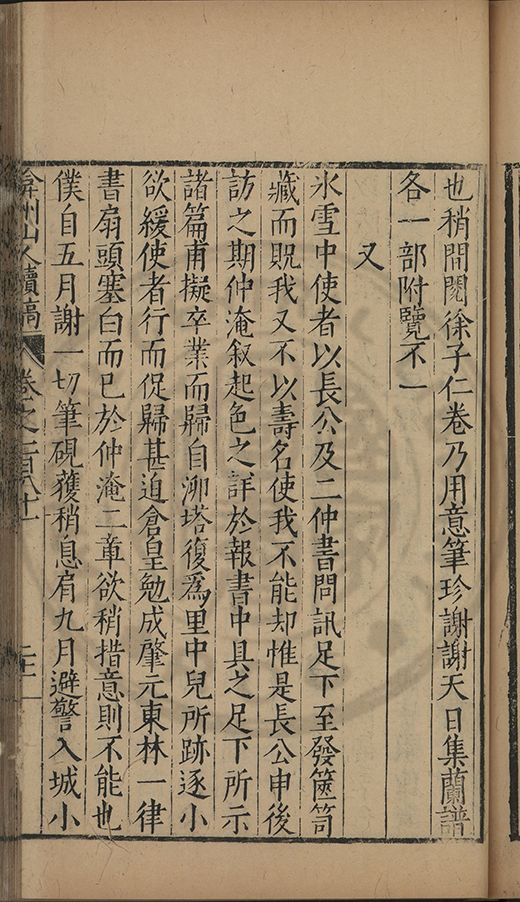 也稍間閱徐子仁卷乃用意筆珍謝謝天日集蘭譜
各一部附覽不一
又
氷雪中使者以長公及二仲書問訊足下至發篋笥
藏而貺我又不以壽名使我不能却惟是長公申後
訪之期仲淹叙起色之詳於報書中具之足下所示
諸篇甫擬卒業而歸自泖塔復爲里中兒所跡逐小
欲緩使者行而促歸甚迫倉皇勉成肇元東林一律
書扇頭塞白而已於仲淹二章欲稍措意則不能也
僕自五月謝一切筆硯蔉稍息肩九月避警入城小
弇州山人續稿 卷之一百八十一